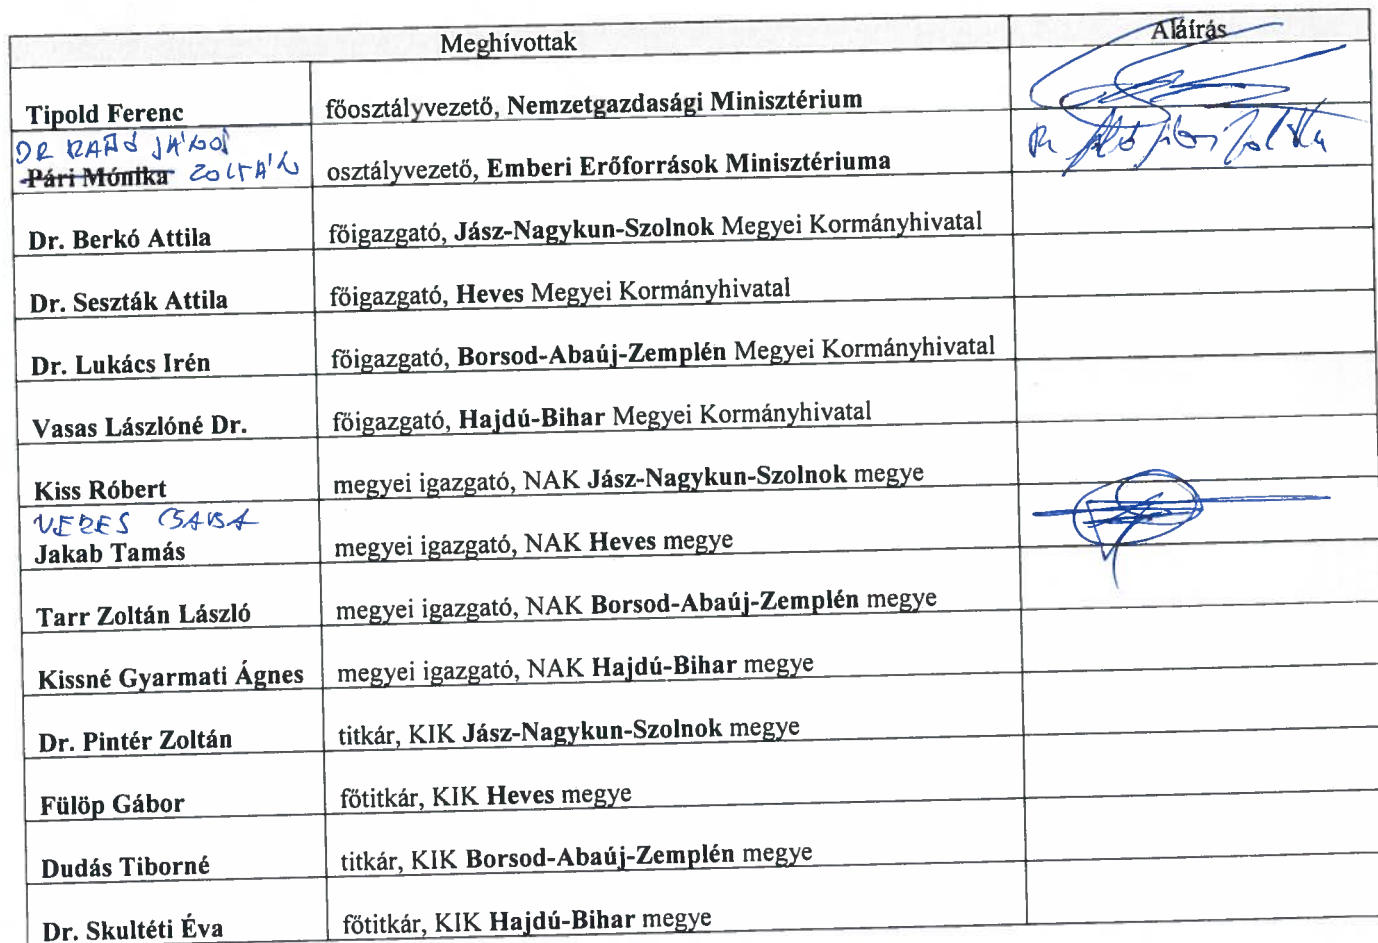 Meghívottak Aláírás
Tipold Ferenc főosztályvezető, Nemzetgazdasági Minisztérium
DR
ZOLTÁN
Pári Mónika osztályvezető, Emberi Erőforrások Minisztériuma
Dr. Berkó Attila főigazgató, Jász-Nagykun-Szolnok Megyei Kormányhivatal
Dr. Seszták Attila főigazgató, Heves Megyei Kormányhivatal
Dr. Lukács Irén főigazgató, Borsod-Abaúj-Zemplén Megyei Kormányhivatal
Vasas Lászlóné Dr. főigazgató, Hajdú-Bihar Megyei Kormányhivatal
Kiss Róbert megyei igazgató, NAK Jász-Nagykun-Szolnok megye
VERES CSABA
Jakab Tamás megyei igazgató, NAK Heves megye
Tarr Zoltán László megyei igazgató, NAK Borsod-Abaúj-Zemplén megye
Kissné Gyarmati Ágnes megyei igazgató, NAK Hajdú-Bihar megye
Dr. Pintér Zoltán titkár, KIK Jász-Nagykun-Szolnok megye
Fülöp Gábor főtitkár, KIK Heves megye
Dudás Tiborné titkár, KIK Borsod-Abaúj-Zemplén megye
Dr. Skultéti Éva főtitkár, KIK Hajdú-Bihar megye